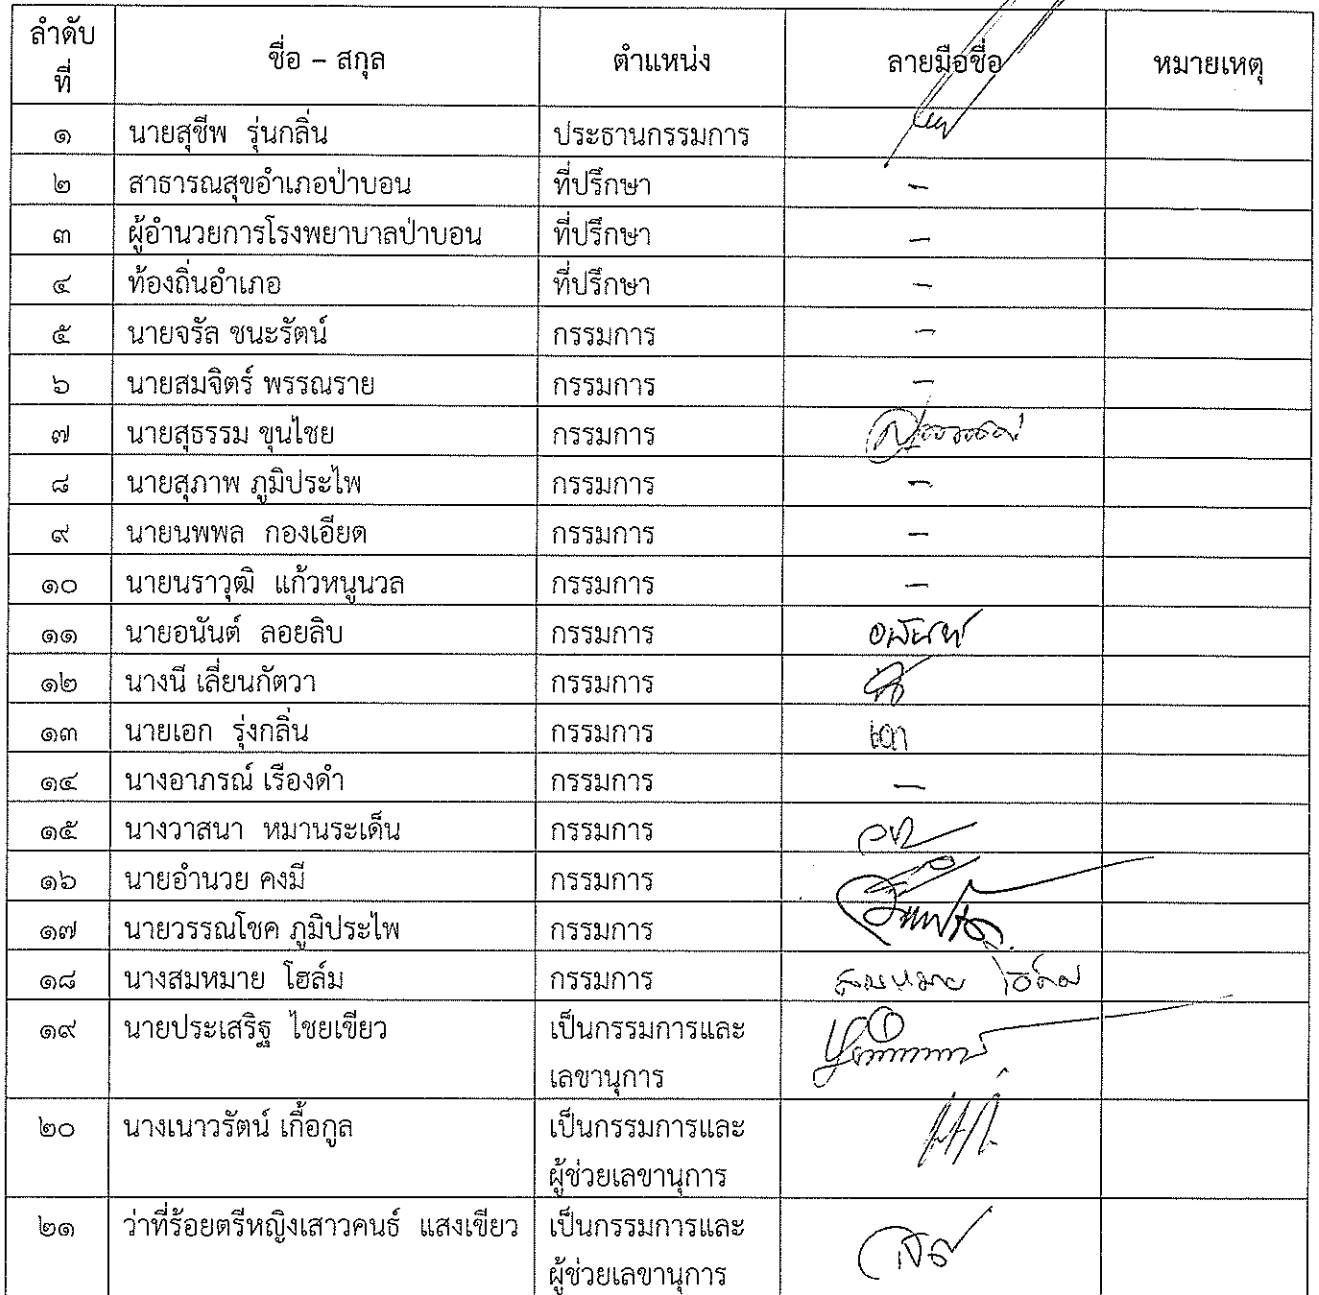 ลำดับ
ที่
ชื่อ – สกุล
ตำแหน่ง
ลายมือชื่อ
หมายเหตุ
๑ นายสุชีพ รุ่นกลิ่น ประธานกรรมการ
๒ สาธารณสุขอำเภอป่าบอน ที่ปรึกษา -
๓ ผู้อำนวยการโรงพยาบาลป่าบอน ที่ปรึกษา -
๔ ท้องถิ่นอำเภอ ที่ปรึกษา -
๕ นายจรัล ชนะรัตน์ กรรมการ -
๖ นายสมจิตร์ พรรณราย กรรมการ -
๗ นายสุธรรม ขุนไชย กรรมการ
๘ นายสุภาพ ภูมิประไพ กรรมการ -
๙ นายนพพล กองเอียด กรรมการ -
๑๐ นายนราวุฒิ แก้วหนูนวล กรรมการ -
๑๑ นายอนันต์ ลอยลิบ กรรมการ อนันต์
๑๒ นางนี เลี่ยนกัตวา กรรมการ
๑๓ นายเอก รุ่งกลิ่น กรรมการ เอก
๑๔ นางอาภรณ์ เรืองดำ กรรมการ -
๑๕ นางวาสนา หมานระเด็น กรรมการ
๑๖ นายอำนวย คงมี กรรมการ
๑๗ นายวรรณโชค ภูมิประไพ กรรมการ
๑๘ นางสมหมาย โฮล์ม กรรมการ สมหมาย โฮล์ม
๑๙ นายประเสริฐ ไชยเขียว เป็นกรรมการและ
เลขานุการ
๒๐ นางเนาวรัตน์ เกื้อกูล เป็นกรรมการและ
ผู้ช่วยเลขานุการ
๒๑ ว่าที่ร้อยตรีหญิงเสาวคนธ์ แสงเขียว เป็นกรรมการและ
ผู้ช่วยเลขานุการ